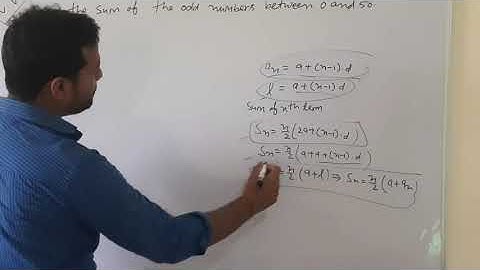 the sum of the odd numbers between 0 and 50
aₙ = a+(n-1)·d
l = a+(n-1)·d
Sum of nth term
Sₙ = n/2 (2a+(n-1)·d)
Sₙ = n/2 (a+a+(n-1)·d)
= n/2 (a+l) ⇒ Sₙ = n/2 (a+aₙ)